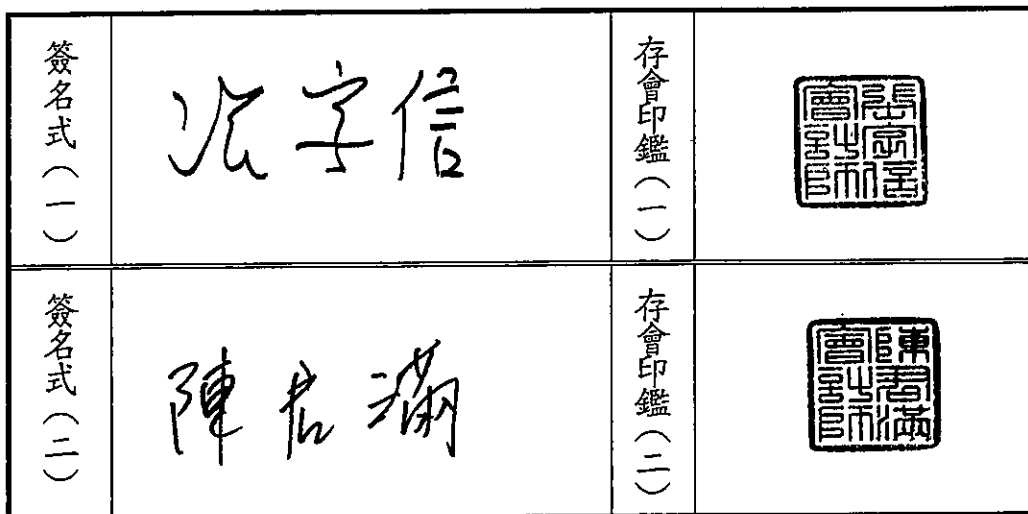 簽名式(一)
張字信
存會印鑑(一)
張字信會計師
簽名式(二)
陳君滿
存會印鑑(二)
陳君滿會計師